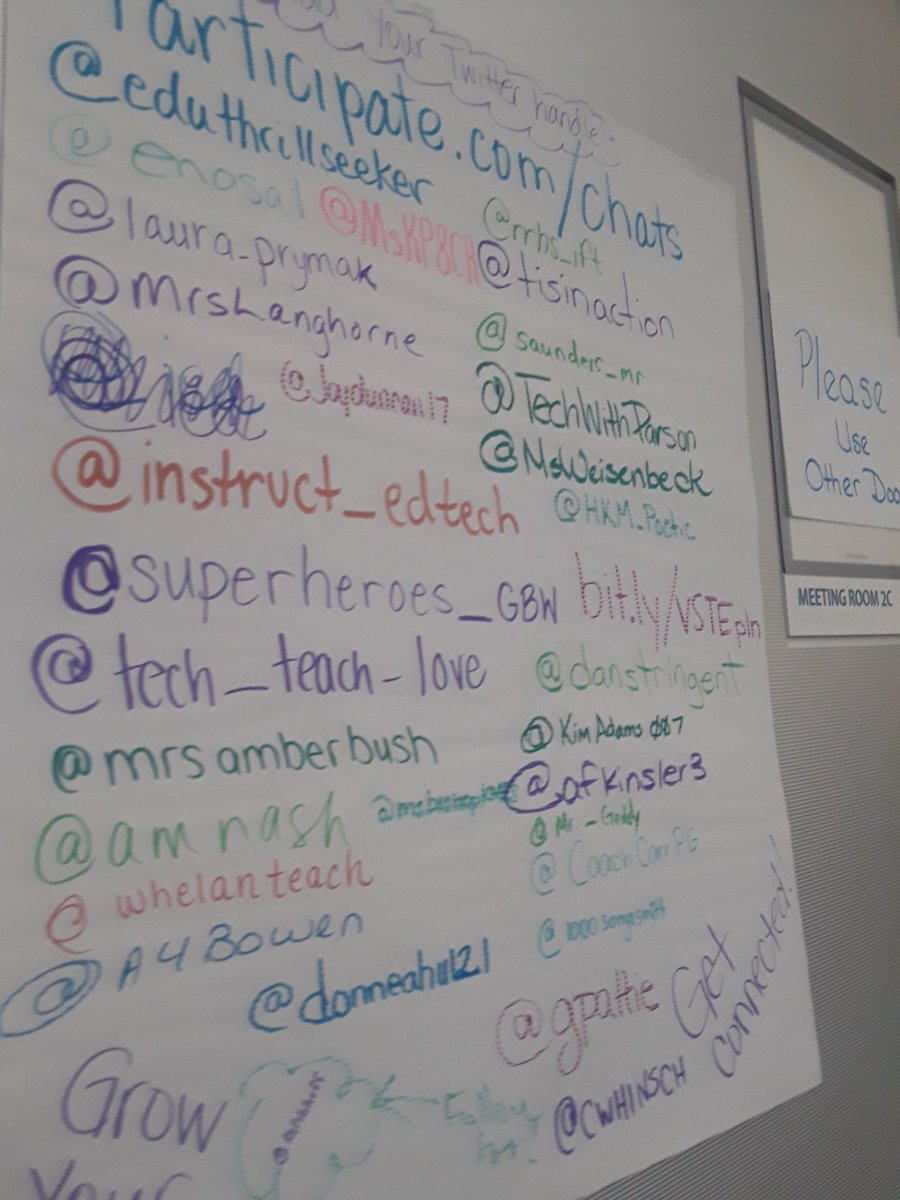 Your Twitter handle:
Participate.com/chats
@eduthrillseeker
@enosal
@MsKP8CR
@rrhs_ift
@laura_prymak
@tisinaction
@MrsLanghorne
@saunders_mr
@Jayduncan17
@TechWithParson
@MsWeisenbeck
@instruct_edtech
@HKM_Poetic
@superheroes_GBW
bit.ly/VSTEpln
@tech_teach_love
@danstringent
@mrsamberbush
@KimAdams007
@afkinsler3
@amnash
@Mr._Geddy
@CoachCarrPG
@whelanteach
@A4Bowen
@1000songsmith
@donneahill21
@gpattie
Get
Connected!
@CWHINSCH
Grow
Your
Follow
me!
Please
Use
Other Doo
MEETING ROOM 2C